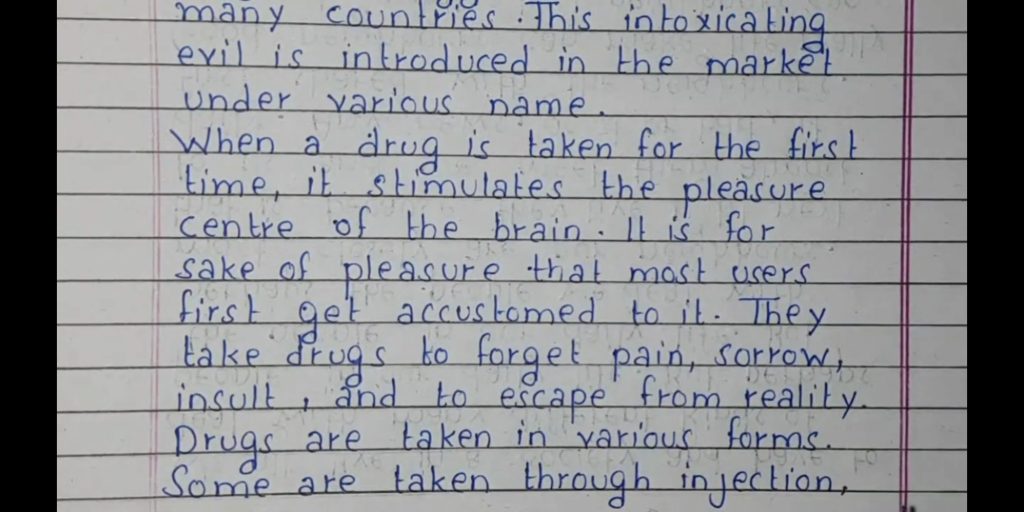 many countries. This intoxicating
evil is introduced in the market
under various name.
When a drug is taken for the first
time, it stimulates the pleasure
centre of the brain. It is for
sake of pleasure that most users
first get accustomed to it. They
take drugs to forget pain, sorrow,
insult, and to escape from reality.
Drugs are taken in various forms.
Some are taken through injection,